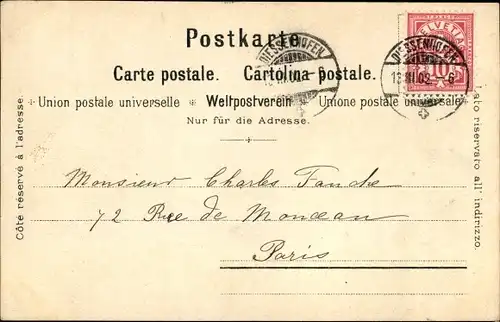 Postkarte
Carte postale. Cartolina postale.
Union postale universelle Weltpostverein Unione postale universale
Nur für die Adresse.
Côté réservé à l'adresse.
Lato riservato all' indirizzo.
HELVETIA
10
DIESSENHOFEN
DIESSENHOFEN
Monsieur Charles
72 Rue de Monceau
Paris